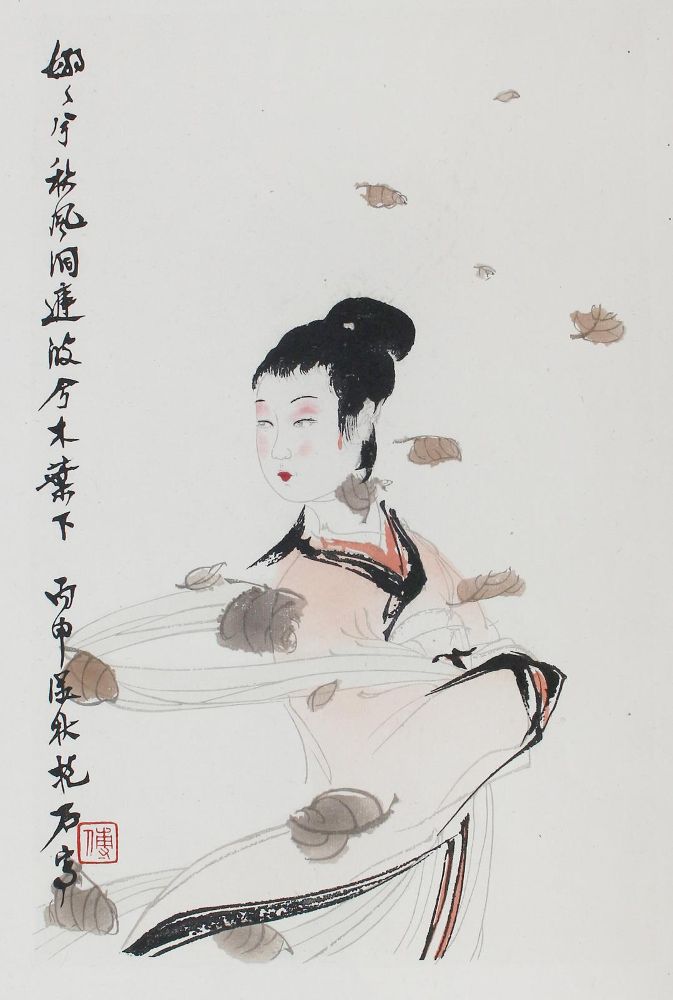 嫋々兮秋風洞庭波兮木葉下 丙申深秋抱石寫
傅